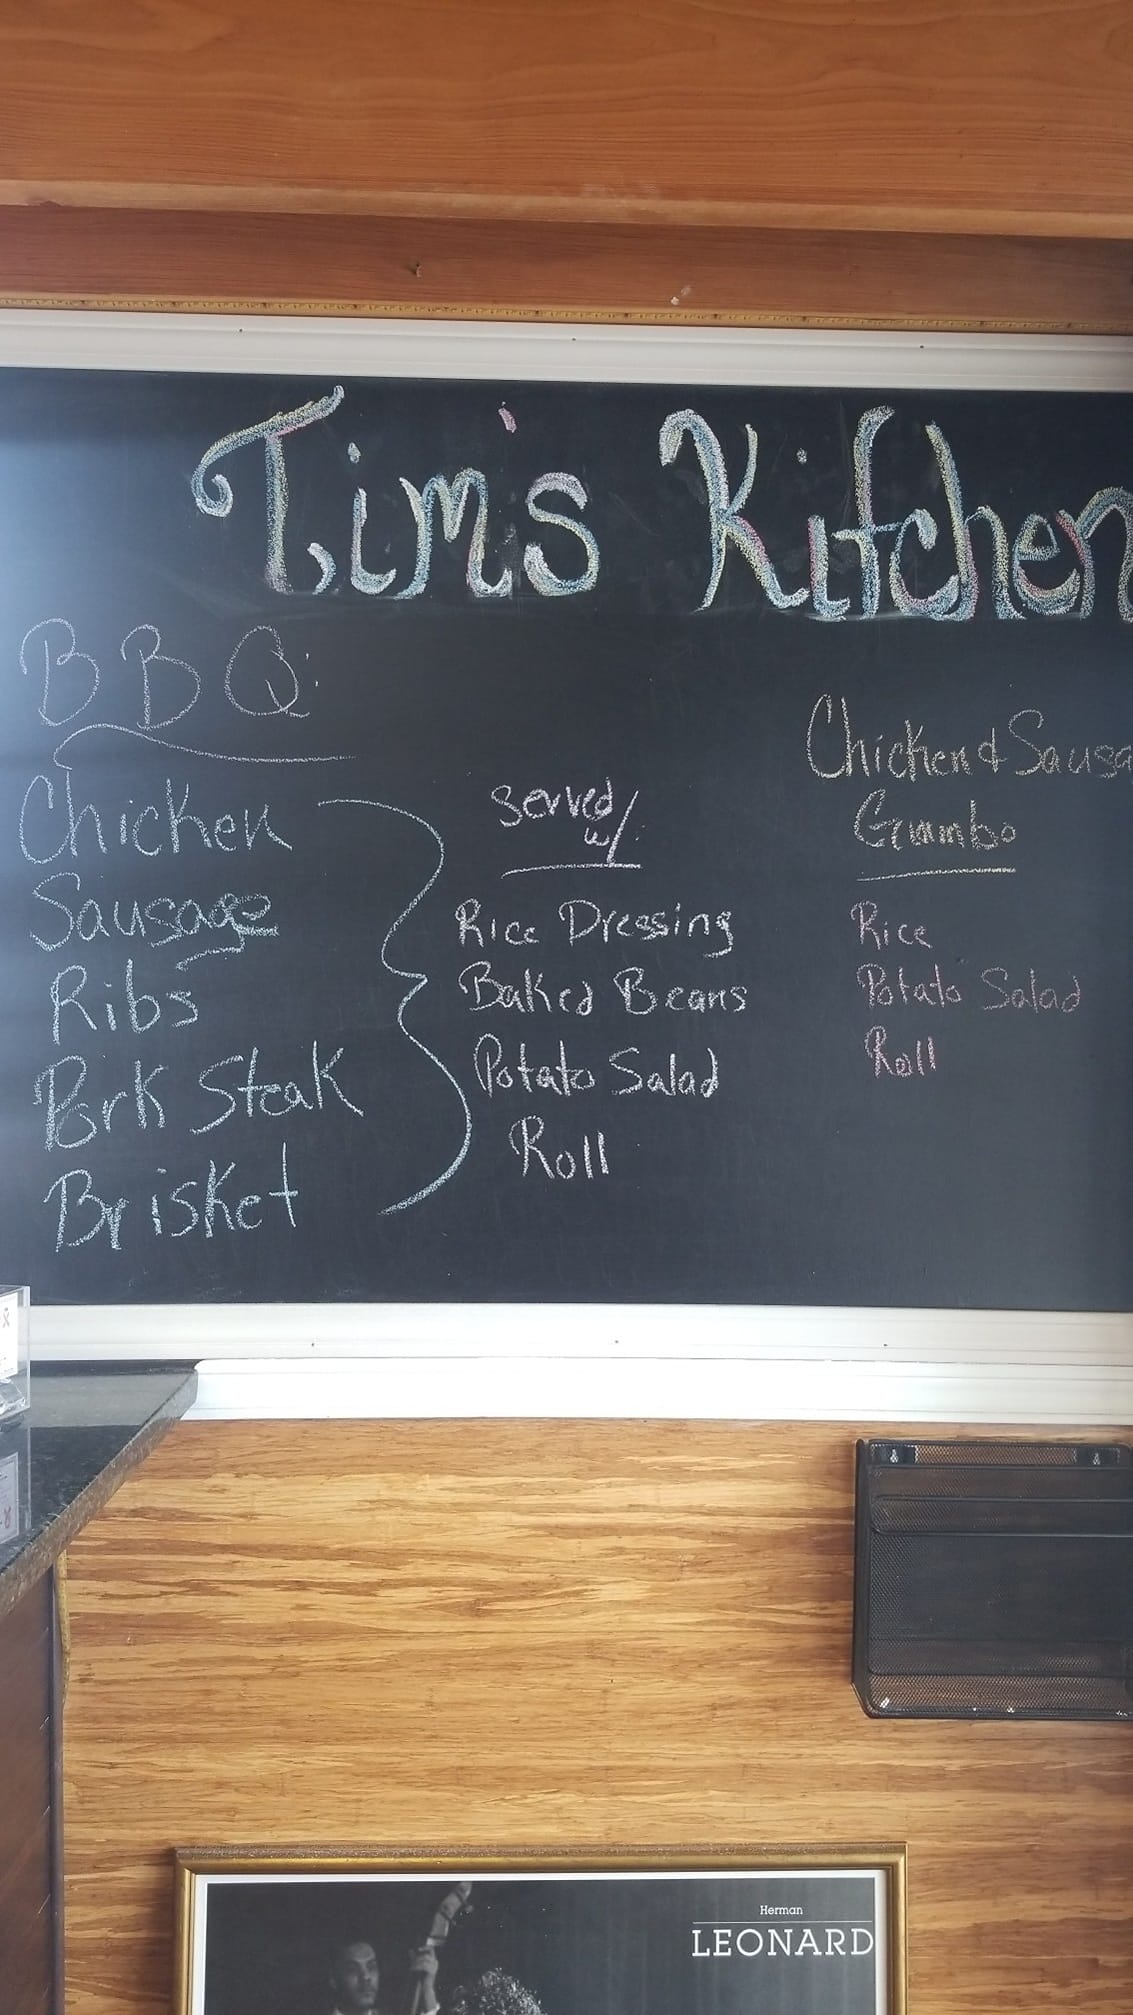 Tim's Kitchen
BBQ:
Chicken
Sausage
Ribs
Pork Steak
Brisket
Served
w/
Rice Dressing
Baked Beans
Potato Salad
Roll
Chicken & Sausa
Gummbo
Rice
Potato Salad
Roll
Herman
LEONARD